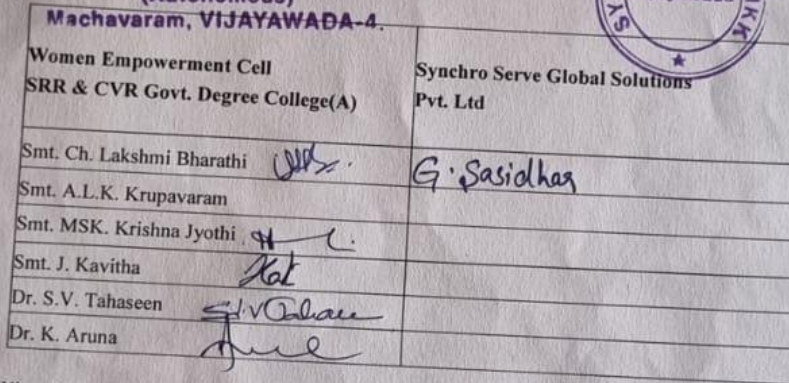 (Autonomous)
Machavaram, VIJAYAWADA-4.
Women Empowerment Cell
SRR & CVR Govt. Degree College(A)
Synchro Serve Global Solutions
Pvt. Ltd
Smt. Ch. Lakshmi Bharathi
G. Sasidhar
Smt. A.L.K. Krupavaram
Smt. MSK. Krishna Jyothi
Smt. J. Kavitha
Dr. S.V. Tahaseen
Dr. K. Aruna